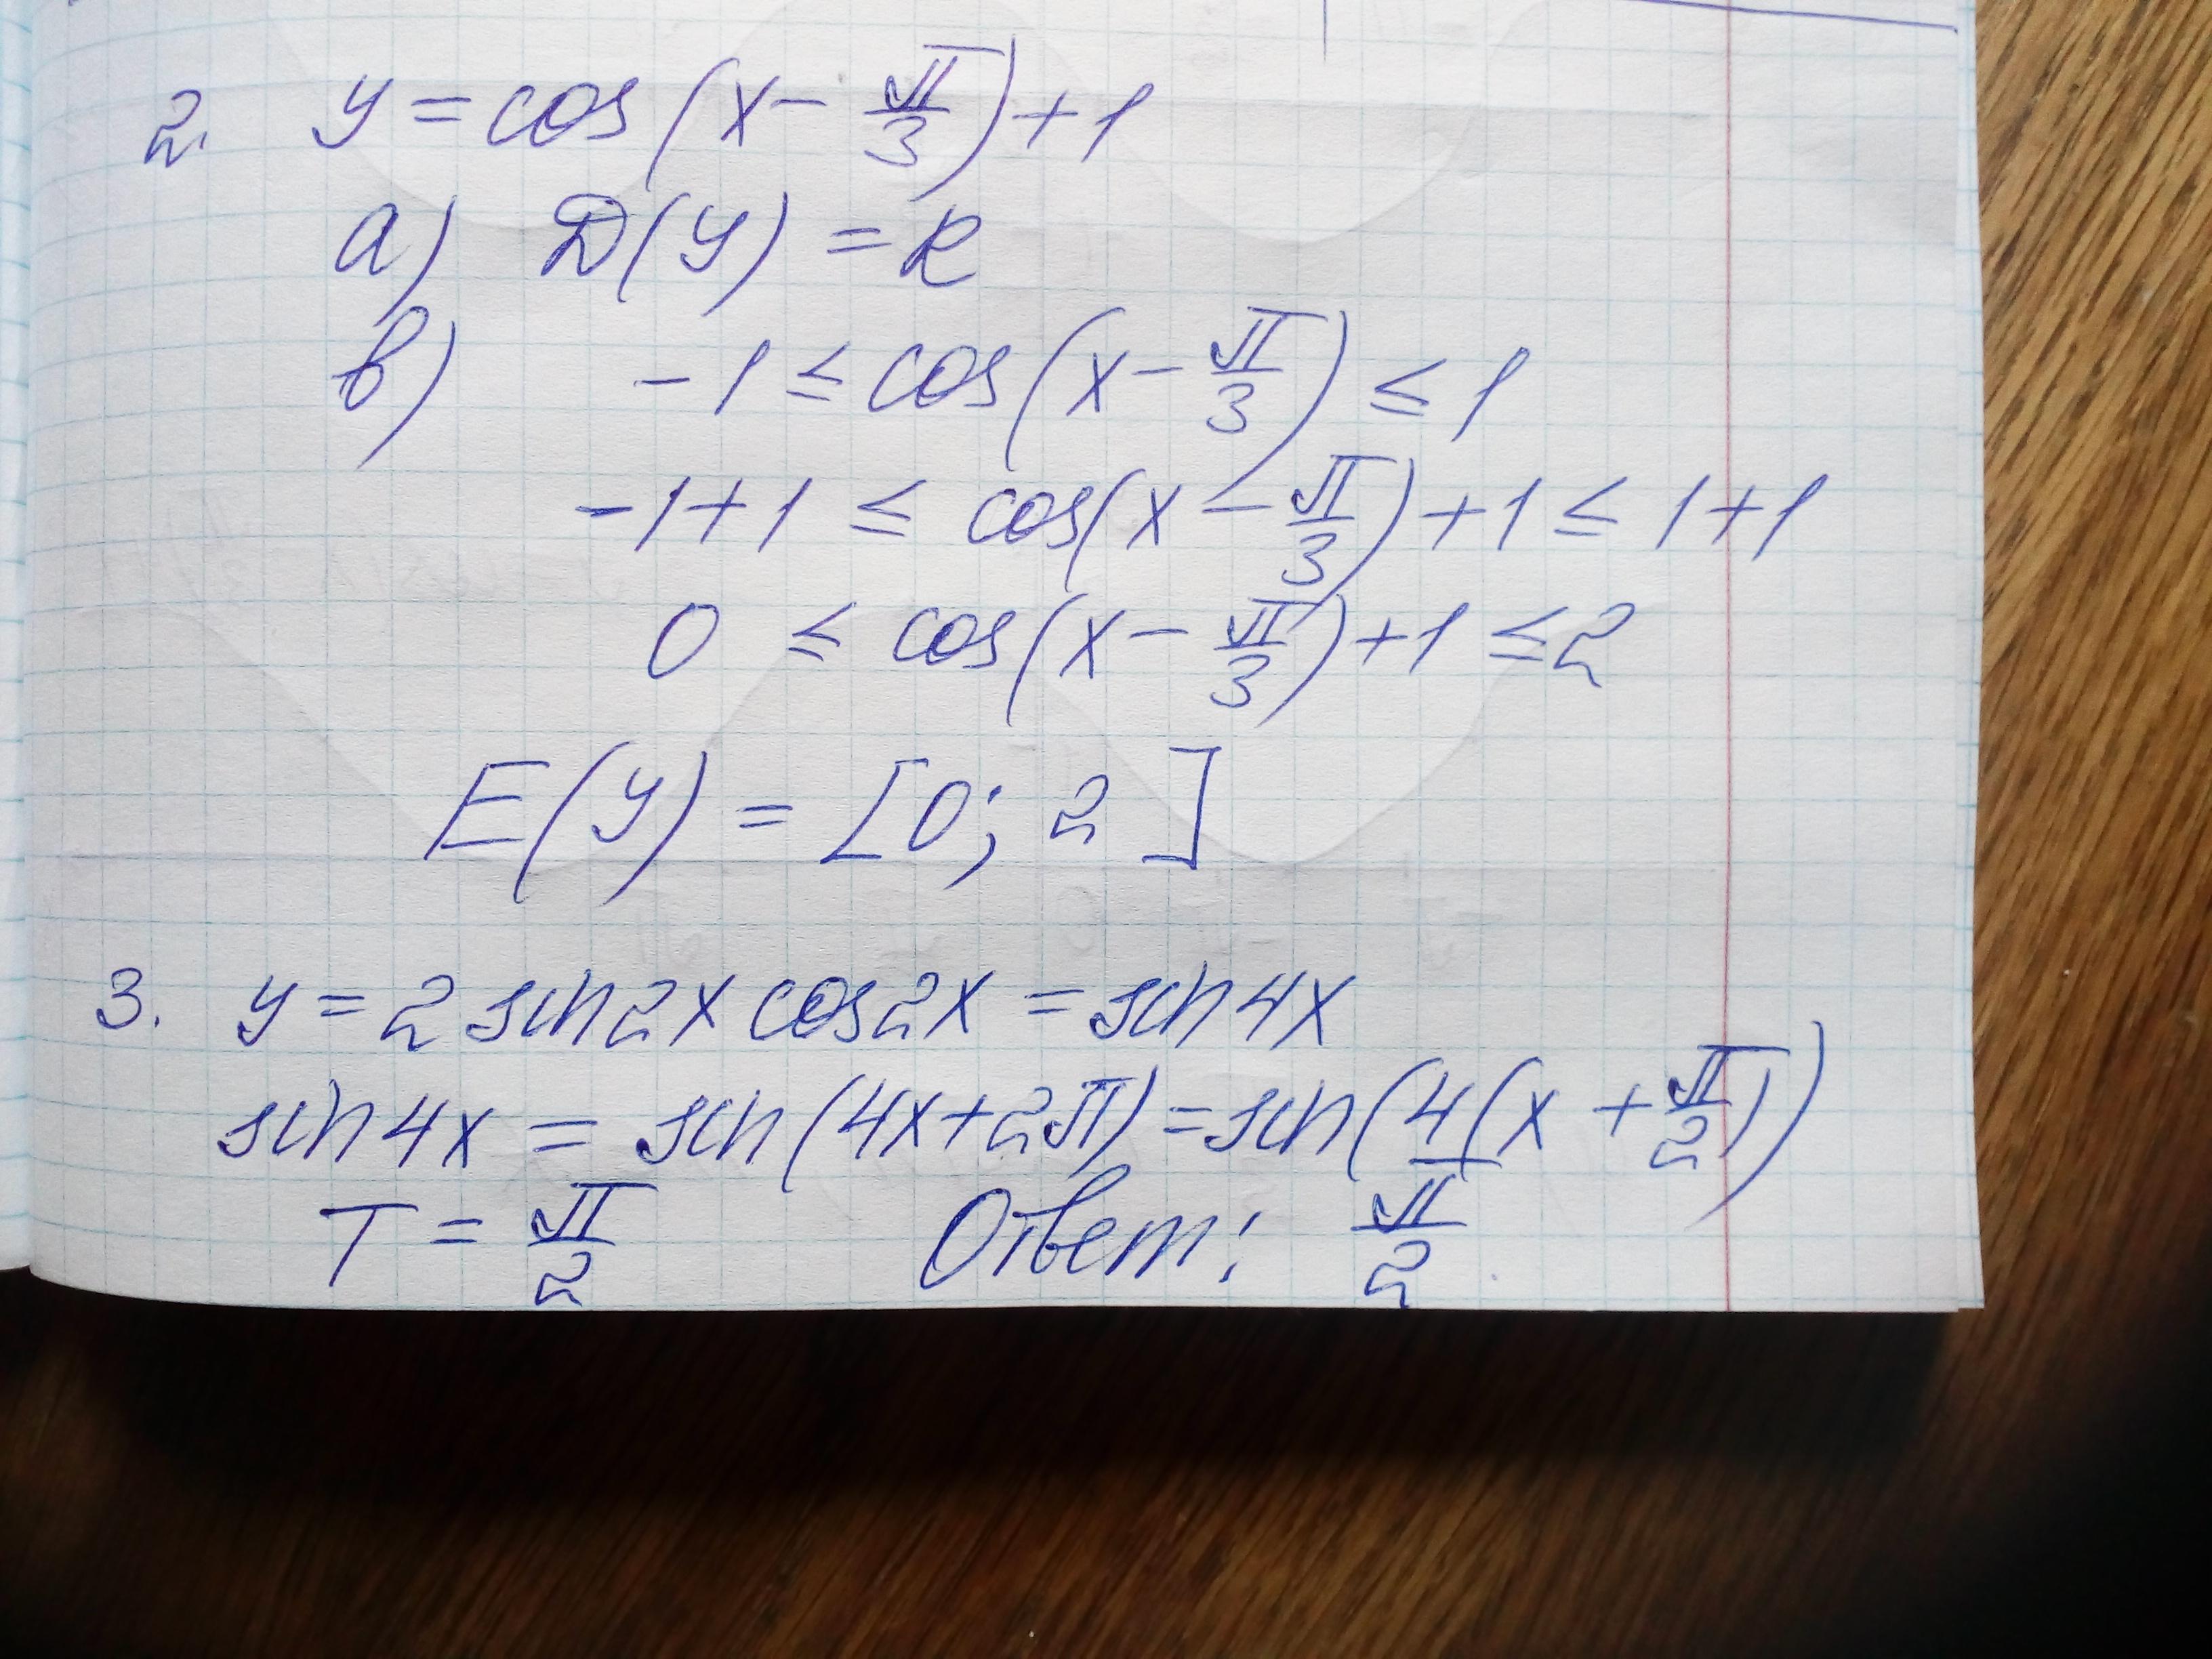 2. y = cos(x - π/3) + 1
a) D(y) = R
в) -1 ≤ cos(x - π/3) ≤ 1
-1+1 ≤ cos(x - π/3) + 1 ≤ 1+1
0 ≤ cos(x - π/3) + 1 ≤ 2
E(y) = [0; 2]
3. y = 2 sin2x cos2x = sin4x
sin4x = sin(4x+2π) = sin(4(x + π/2))
T = π/2 Ответ: π/2